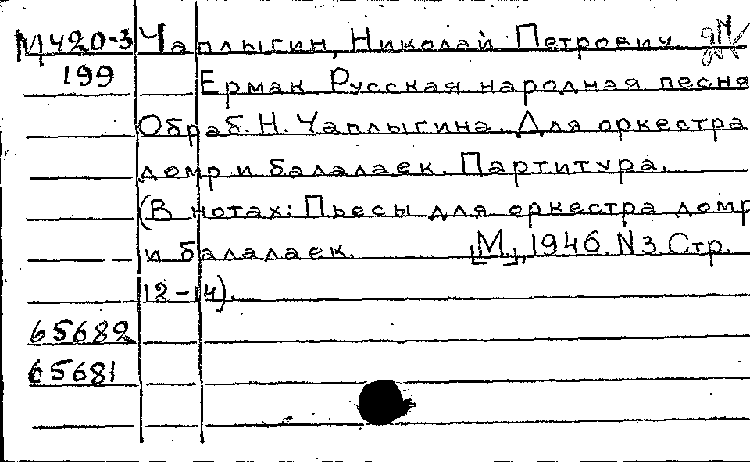 М420-3 Чаплыгин, Николай Петрович
199 Ермак. Русская народная песня
Обраб. Н. Чаплыгина. Для оркестра
домр и балалаек. Партитура.
(В нотах: Пьесы для оркестра домр
и балалаек. [М.], 1946. N3. Стр.
12-14).
65682
65681